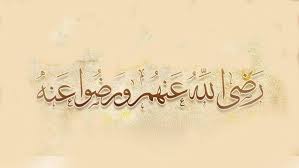 رَضِيَ اللَّهُ عَنْهُمْ وَرَضُوا عَنْهُ